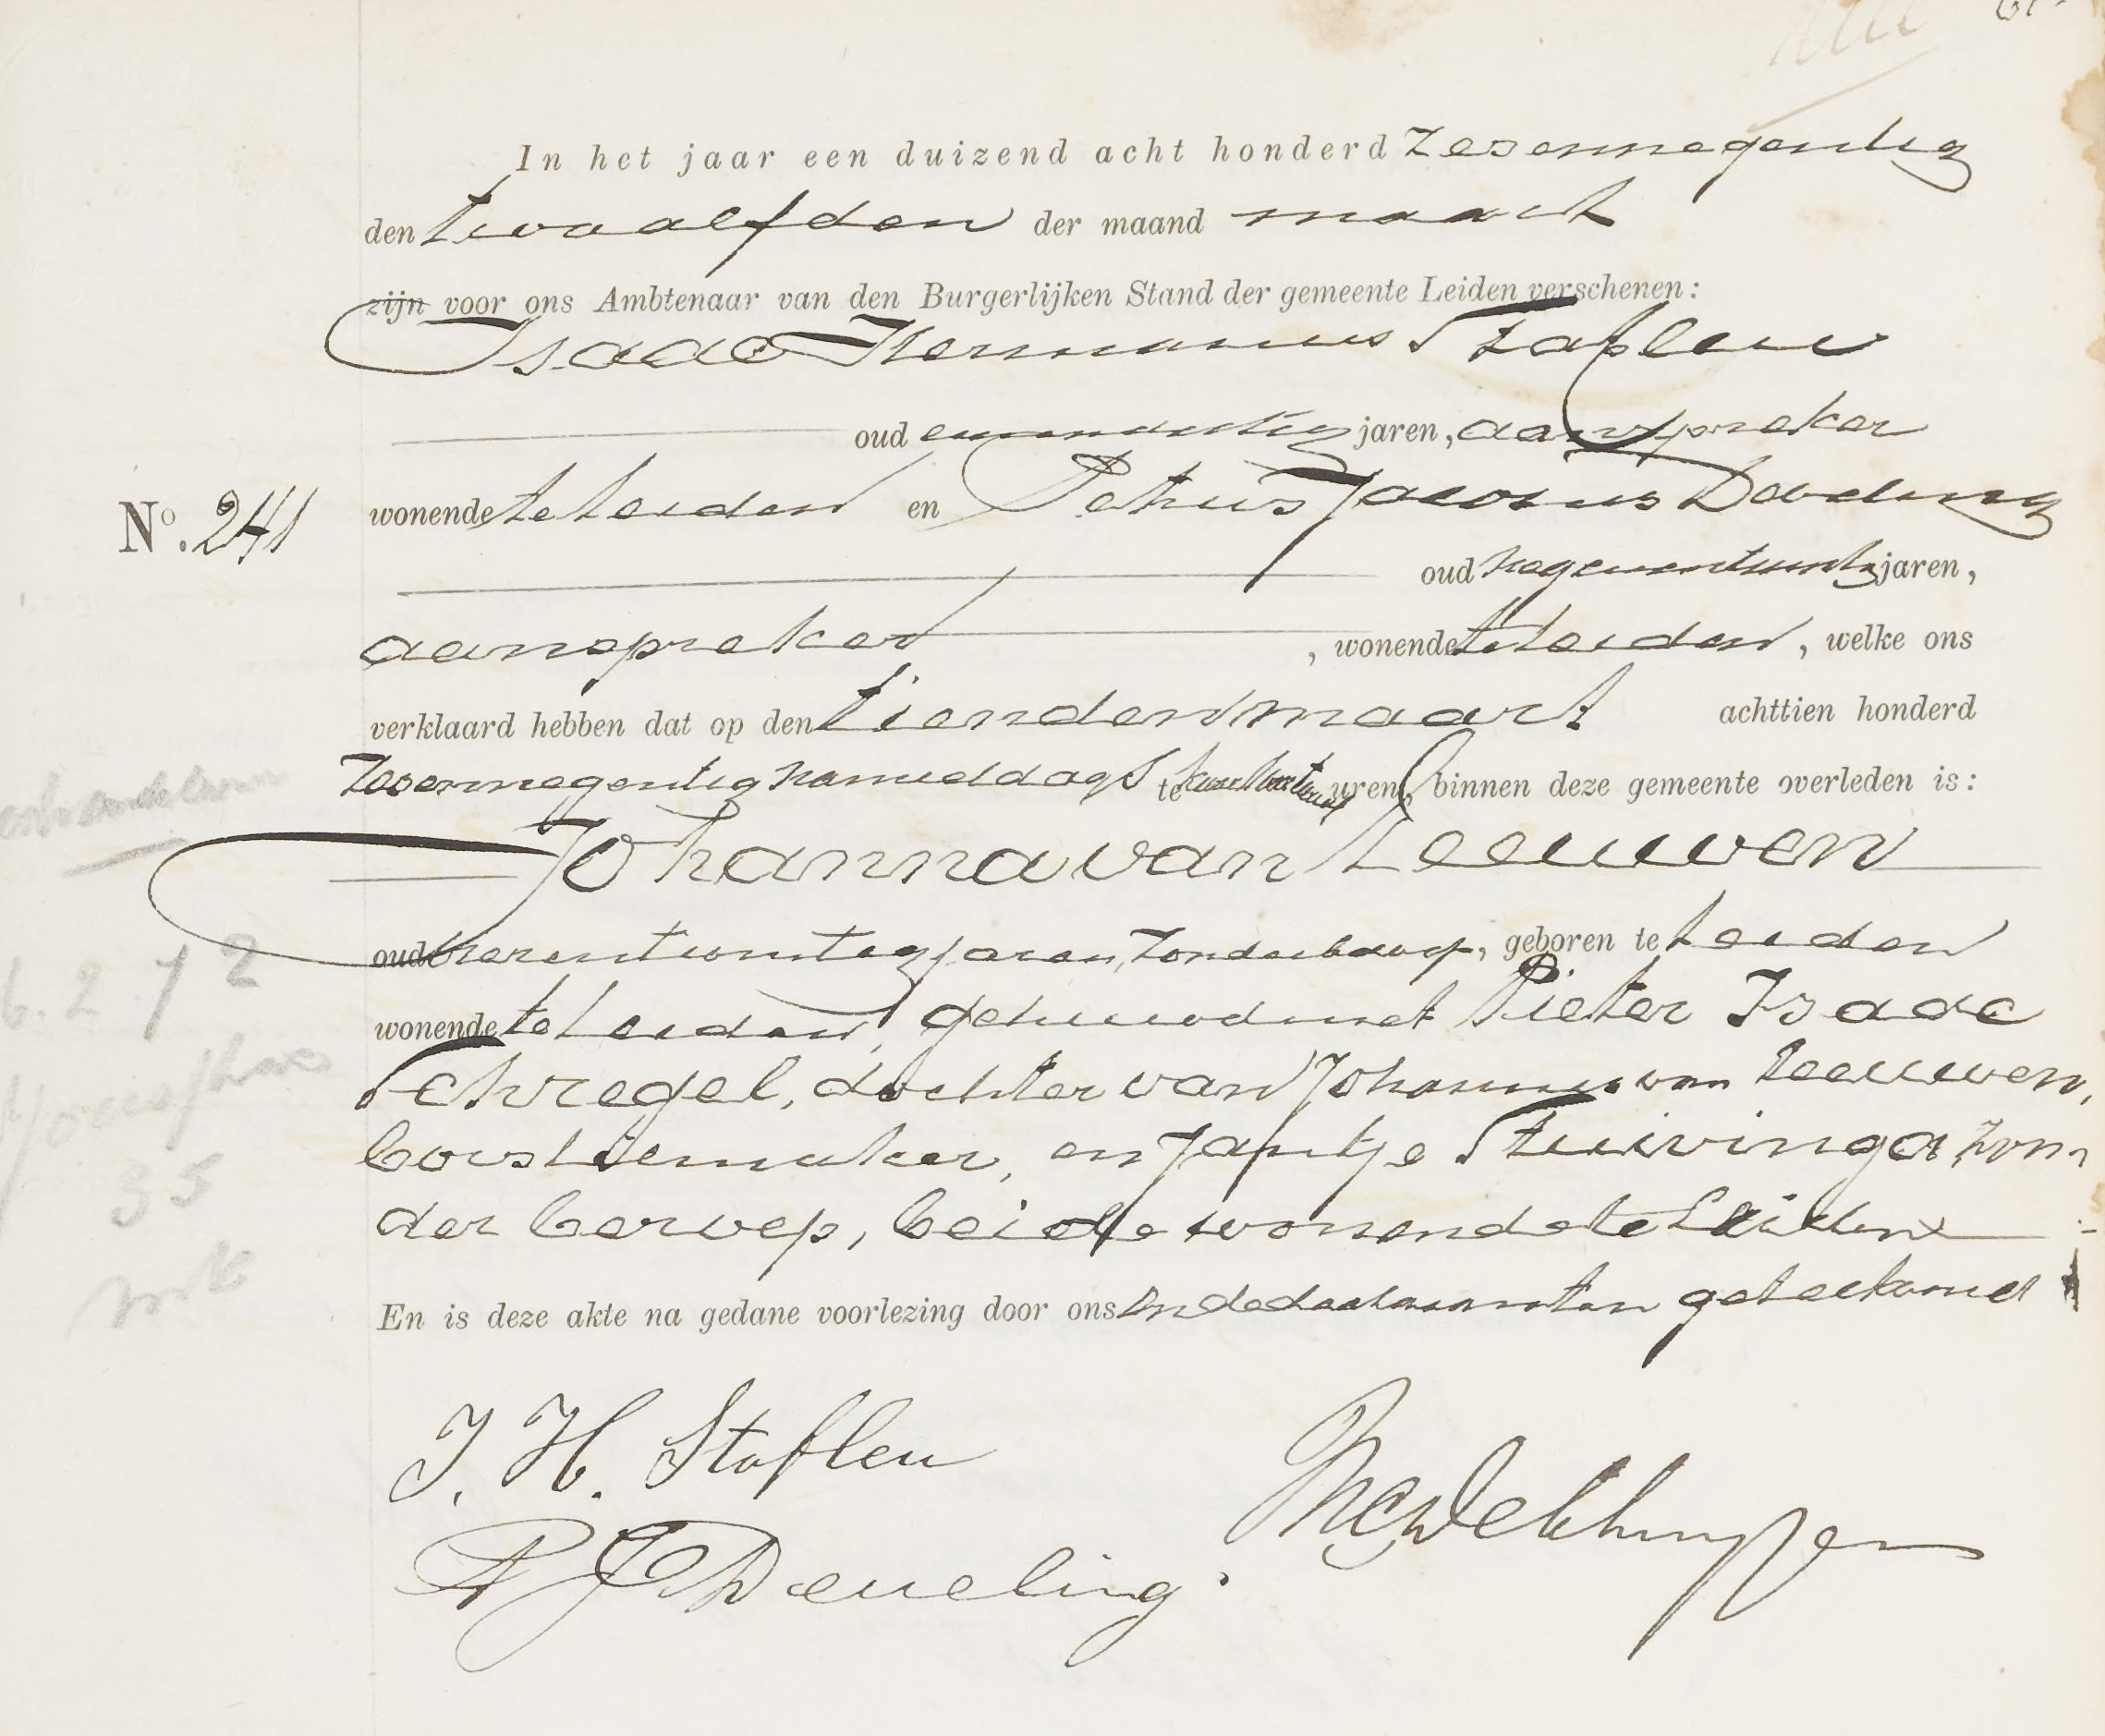 In het jaar een duizend acht honderd zesennegentig
den twaalfden der maand maart
zijn voor ons Ambtenaar van den Burgerlijken Stand der gemeente Leiden verschenen:
Isaac Hermanus Stafleu
oud jaren, aanspreker
wonende te Leiden en Petrus Jacobus
No. 241
oud negenentwintig jaren,
aanspreker, wonende te Leiden, welke ons
verklaard hebben dat op den tienden maart achttien honderd
zesennegentig namiddags te uren, binnen deze gemeente overleden is:
Johanna van Leeuwen
oud jaren, zonder beroep, geboren te Leiden
wonende te Leiden, gehuwd met Pieter Isaac
Schregel, dochter van Johannes van Leeuwen,
borstelmaker, en Jantje Stuivinga, zon-
der beroep, beide wonende te Leiden
En is deze akte na gedane voorlezing door ons en de declaranten geteekend
J. H. Stafleu
P J Daeueling.